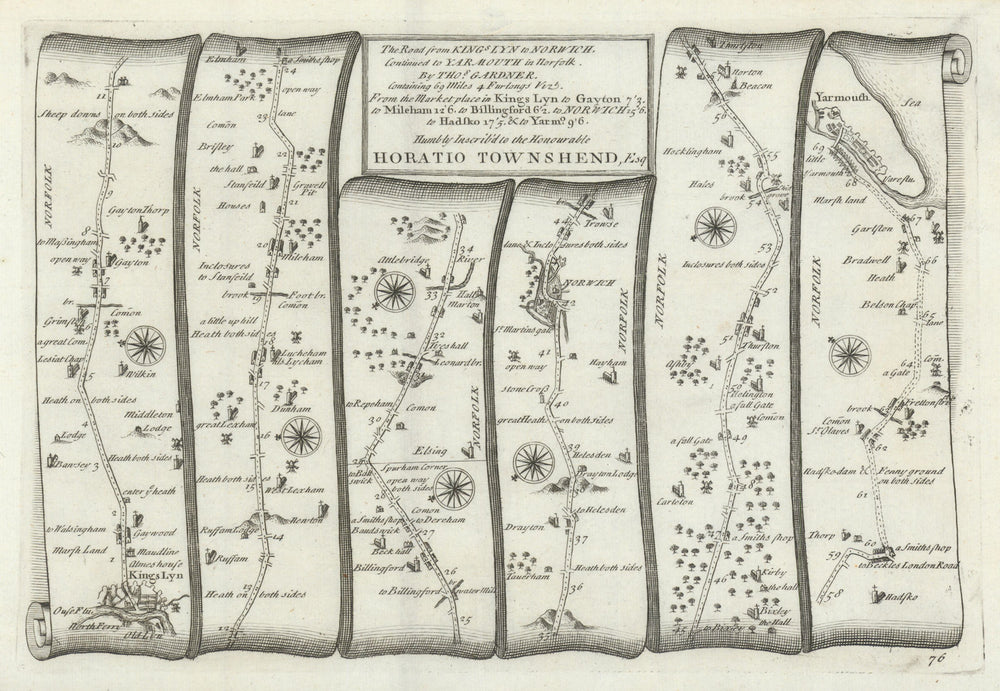 The Road from KINGS LYN to NORWICH.
Continued to YARMOUTH in Norfolk.
By THOs. GARDNER.
Containing 69 Miles 4 Furlongs Vizt.
From the Market place in Kings Lyn to Gayton 7'3.
to Mileham 12'6. to Billingford 6'2. to NORWICH 15'6.
to Hadsko 17'5. & to Yarmo. 9'6.
Humbly Inscrib'd to the Honourable
HORATIO TOWNSHEND, Esq
11
Sheep downs on both sides
10
NORFOLK
9
Gayton Thorp
8
to Massingham
open way
Gayton
7
br.
Comon
Grimston
6
a great Com
Lesiat Chap
5
Wilkin
Heath on both sides
Middleton
4
Lodge
Lodge
Bawsey
3
Heath both sides
enter ye heath
2
to Walsingham
Gaywood
Marsh Land
1
Maudline
Almeshouse
Kings Lyn
Ouse Flu.
North Ferry
Old Lyn
Elmham
a Smiths shop
24
open way
Elmham Park
23
lane
Comon
Brisley
the hall
22
Stanfeild
Gravell
Pit
Houses
21
NORFOLK
20
Mileham
Inclosures
to Stanfeild
brook
19
Foot br.
Comon
a little up hill
Heath both sides
18
Lucheham
als Lycham
17
Dunham
great Lexham
16
Heath both sides
15
West Lexham
Ruffam Lodge
Newton
14
Ruffam
13
Heath on both sides
12
34
River
Attlebridge
33
Hall
Morton
32
Iveshall
31
Leonard br.
to Repeham
30
Comon
29
NORFOLK
Elsing
28
to Baudswick
Spurham Corner
open way
both sides
Comon
27
a Smiths shop
to Dereham
Baudswick
Beck hall
Billingford
26
to Billingford
water Mill
25
44
Trowse
43
lane & Inclosures both sides
NORWICH
42
St. Martins gate
NORFOLK
41
open way
Hayham
Stone Cross
40
great Heath on both sides
39
Helesden
Drayton Lodge
38
to Helesden
Drayton
37
Taverham
Heath both sides
36
35
Thurlston
57
Norton
Beacon
56
Hocklingham
55
Hales
brook
54
53
Inclosures both sides
NORFOLK
52
51
Thurston
Ashby
50
Holington
a fall Gate
Comon
a fall Gate
49
48
Carleton
47
a Smiths shop
46
Kirby
the hall
Bixley
the Hall
45
to Bixley
Sea
Yarmouth
69
little
Yarmouth
68
Varestu
Marsh land
67
Garlston
66
Bradwell
Heath
Belson Chap
65
lane
NORFOLK
64
Com
a Gate
63
Fretton
brook
Comon
St. Olaves
62
Hadsko dam &
Fenny ground
on both sides
61
Thorp
60
59
a Smiths shop
to Beckles London Road
58
Hadsko
76